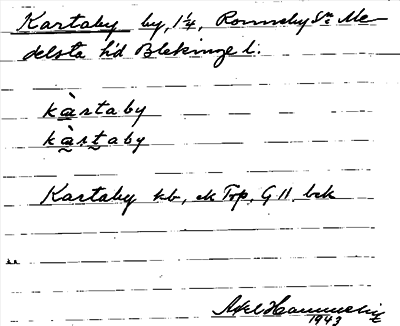 Kartaby by, 1¼, Ronneby sn Me-
delsta hd Blekinge l.
kàrtaby
kàrtaby
Kartaby kb, ek Top, G II, bek
Axel
1943